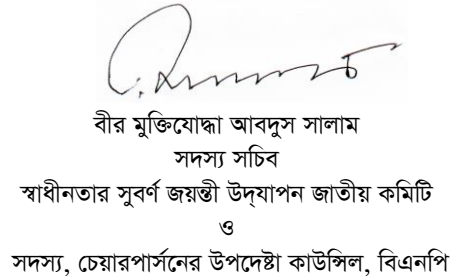 বীর মুক্তিযোদ্ধা আবদুস সালাম
সদস্য সচিব
স্বাধীনতার সুবর্ণ জয়ন্তী উদ্‌যাপন জাতীয় কমিটি
ও
সদস্য, চেয়ারপার্সনের উপদেষ্টা কাউন্সিল, বিএনপি